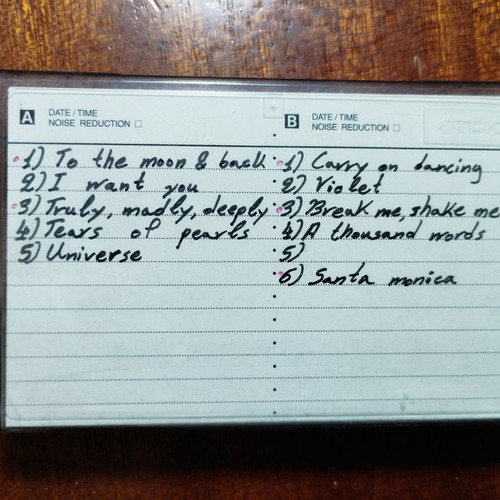 A DATE / TIME
NOISE REDUCTION
1) To the moon & back
2) I want you
3) Truly, madly, deeply
4) Tears of pearls
5) Universe
B DATE / TIME
NOISE REDUCTION
1) Carry on dancing
2) Violet
3) Break me, shake me
4) A thousand words
5)
6) Santa monica